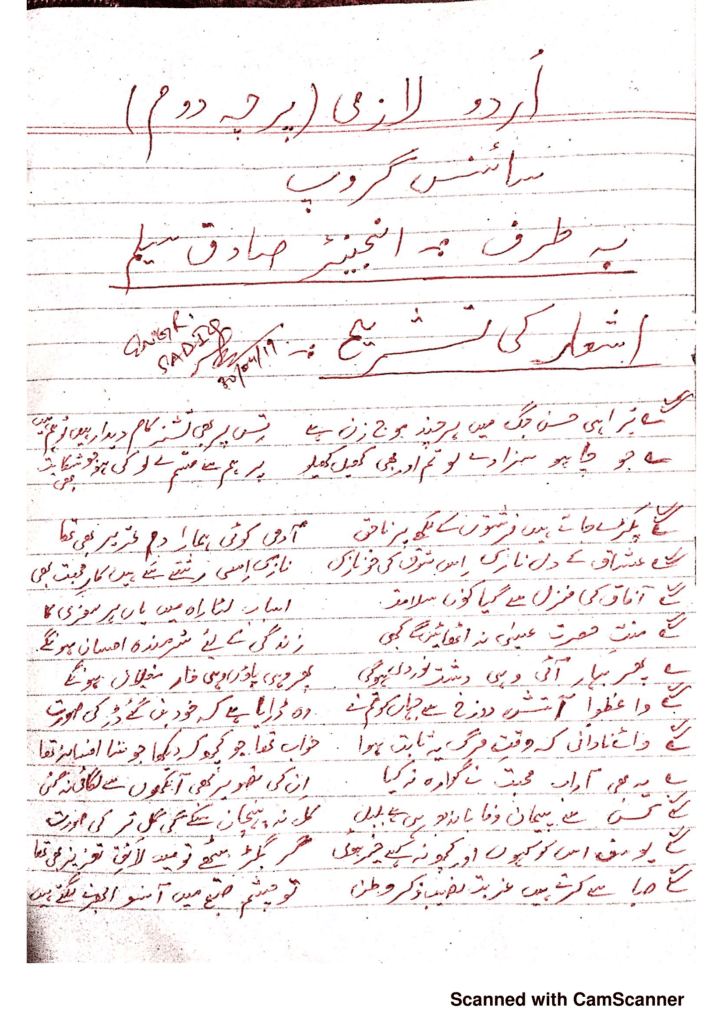 اُردو لازمی (پرچہ دوم)
سائنس گروپ
بہ طرف :- انجینئر صادق سلیم
اشعار کی تشریح :-
ENGR. SADIQ
30/04/19
تیرا ہی حسن جگ میں ہر چند موج زن ہے تس پر بھی تشنہ کام دیدار ہیں تو ہم ہیں
جو چاہو سزا دے لو تم اور بھی کھیل کھیلو پر ہم سے قسم لے لو کی ہو جو شکایت بھی
پکڑے جاتے ہیں فرشتوں کے لکھے پر ناحق آدمی کوئی ہمارا دم تحریر بھی تھا
عشاق کے دل نازک اس شوخ کی خو نازک نازک اسی رشتے سے ہیں کار محبت بھی
آفاق کی منزل سے گیا کون سلامت اسباب لٹا راہ میں یاں ہر سفری کا
منت حضرت عیسٰی نہ اٹھائیں گے کبھی زندگی کے لئے شرمندہ احسان ہونگے
پھر بہار آئی وہی دشت نوردی ہوگی پھر وہی پاؤں وہی خار مغیلاں ہونگے
واعظوا آتش دوزخ سے جہاں کو تم نے وہ ڈرایا ہے کہ خود بن گئے ڈر کی صورت
وائے نادانی کہ وقت مرگ یہ ثابت ہوا خواب تھا جو کچھ کہ دیکھا جو سنا افسانہ تھا
یہ بھی آداب محبت نے گوارہ نہ کیا ان کی تصویر بھی آنکھوں سے لگائی نہ گئی
کس نے پیمان وفا باندھ رہی ہے بلبل کل نہ پہچان سکے گی گل تر کی صورت
یوسف اس کو کہوں اور کچھ نہ کہے خیر ہوئی گر بگڑ بیٹھے تو میں لائق تعزیر بھی تھا
صبا سے کرتے ہیں غربت نصیب ذکر وطن تو چشم صبح میں آنسو ابھرنے لگتے ہیں
Scanned with CamScanner